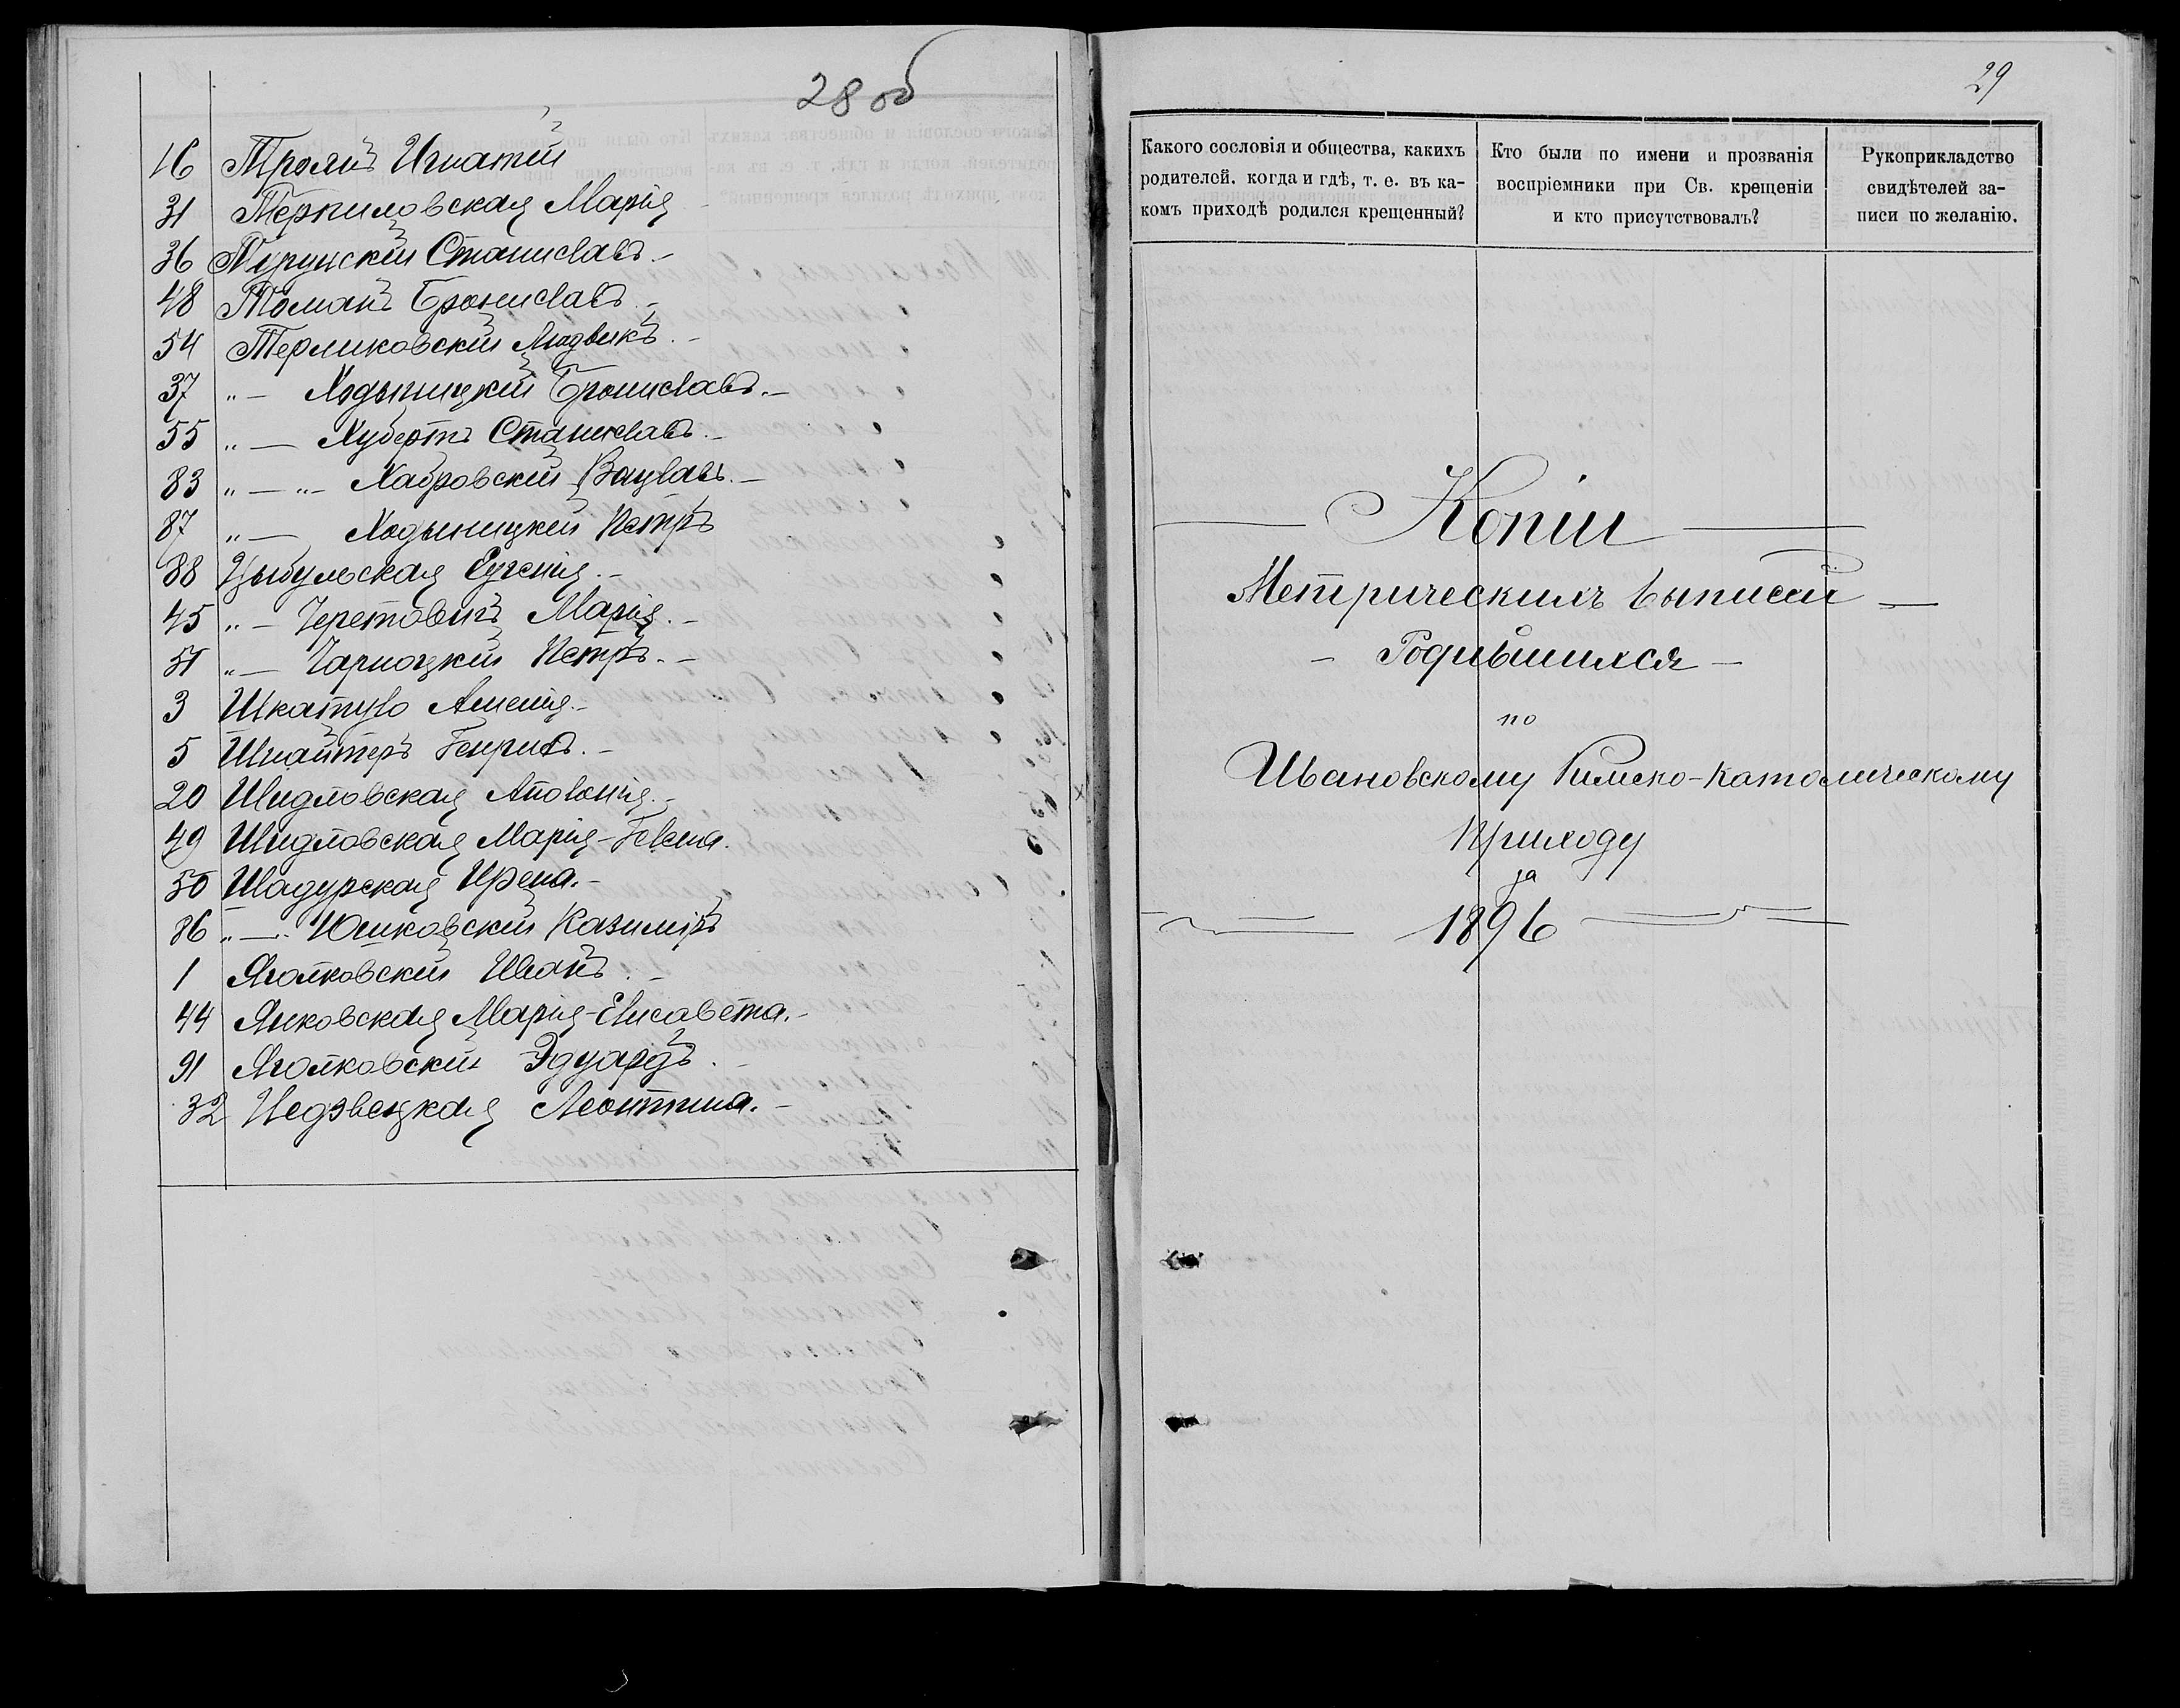 28 об
16 Троянъ Игнатій
31 Терпиловская Марія
36 Турунскій Станиславъ.-
48 Томанъ Брониславъ.-
54 Терликовскій Людвикъ.-
37 "- Ходыницкій Брониславъ.-
55 "- Хубертъ Станиславъ.-
83 "-"- Хабровскій Вацлавъ.-
87 "- Ходыницкій Петръ
88 Цыбульская Евгенія.-
45 "- Черетовичъ Марія.-
51 "- Чарноцкій Петръ.-
3 Шкатуло Амелія.-
5 Шнайтеръ Генрихъ.-
20 Шидловская Аполонія.-
49 Шидловская Марія-Гелена.
50 Шадурская Ирена.-
86 "-. Юшковскій Казиміръ
1 Яголковскій Иванъ.-
44 Янковская Марія-Елисавета.-
91 Яголковскій Эдуардъ.
32 Недзвецкая Леонтина.-
29
Какого сословія и общества, какихъ
родителей, когда и гдѣ, т. е. въ ка-
комъ приходѣ родился крещенный?
Кто были по имени и прозванія
воспріемники при Св. крещеніи
и кто присутствовалъ?
Рукоприкладство
свидѣтелей за-
писи по желанію.
Копіи
Метрическихъ выписей
- Родившихся -
по
Ивановскому Римско-Католическому
Приходу
за
1896